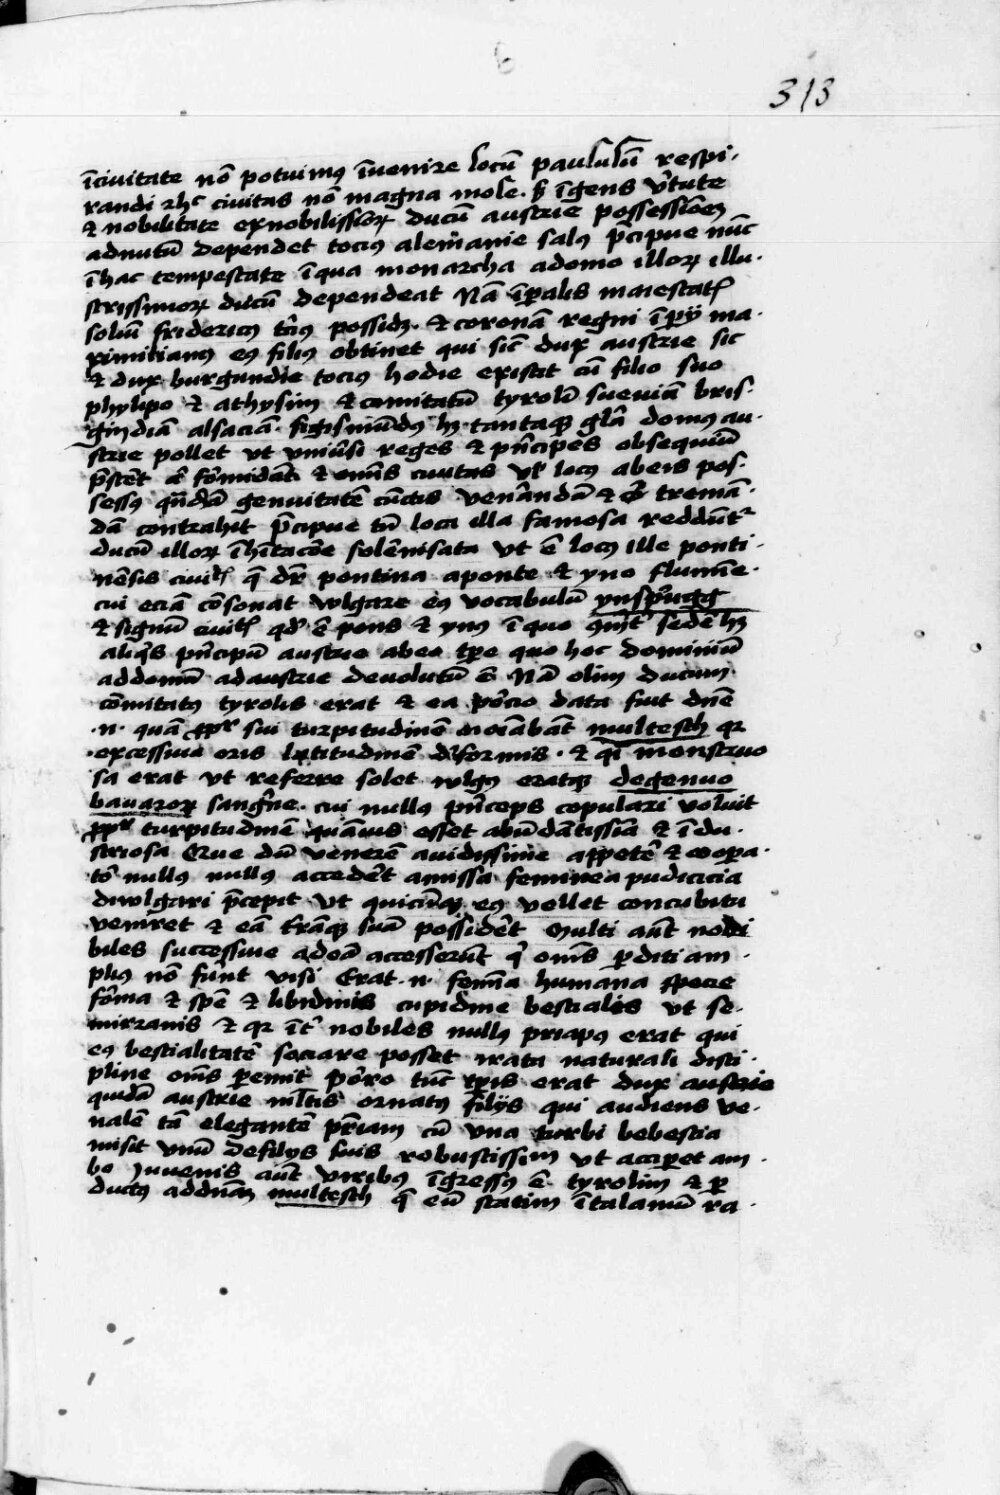 6
313
īciuitate nō potuimꝰ īuenire locū paululū respi-
randi ⁊ hᶜ ciuitas nō magna mole · sꝫ īgens v̄tute
⁊ nobilitate exnobilissīoꝝ ducū austrie possessiōeꝫ
adnutū dependet tociꝰ alem̄anie salꝰ p̄cipue nūc
ī hac tempestate ī qua monarcha adomo illoꝝ illu-
strissimoꝝ ducū dependeat Nā īp̄alis maiestatꝭ
soliū fridericꝰ t̄ciꝰ possidꝫ · ⁊ coronā regni īpij ma-
ximilianꝰ eꝰ filiꝰ obtinet qui sic̄ dux austrie sic
⁊ dux burgundie tociꝰ hodie existit cū filio suo
phylipo ⁊ athysim ⁊ comitatū tyrolꝭ sueuiā bris-
gindiā alsaciā · sigismūdꝰ hꝫ · tantaqꝫ gl̄a domꝰ au-
strie pollet vt vniūsi reges ⁊ pn̄cipes obsequiū
p̄stēt ac̄ fōmidāt ⁊ om̄s ciuitas vl̄ locꝰ abeis pos-
sessꝰ qn̄dā genuitatē cūctis ven̄andā ⁊ tremā-
dā contrahit p̄cipue tn̄ loca illa famosa reddūtᷣ
ducū illoꝝ īhītacōe solēnisata vt ē locꝰ ille ponti-
nēsis ciuitꝭ q̄ dr̄ pontina aponte ⁊ yno flumīe ·
cui eciā cōsonat wlgare eꝰ vocabulū ynsprugg
⁊ signū ciuitꝭ qd̓ ē pons ⁊ ynꝰ ī quo sedē hꝫ
aliqͥs pn̄cipū austrie abeo tp̄e quo hoc dominiū
addomū ad austrie deuolutū ē Nā olim ducum
cōmitatꝰ tyrolis erat ⁊ ea porcio data fuit dn̄e
·n· quā ꝓpᵗ sui turpitudinē noīabāt multesch qꝛ
excessiua oris latitudinē dīformis · ⁊ qͥ monstruo
sa erat vt referre solet wlgꝰ eratqꝫ degenuo
bauaroꝝ sangᷓne · cui nullꝰ pn̄ceps copulari voluit
ꝓpᵗ turpitudinē quāuis esset abūdātissīa ⁊ īdu-
striosa Que dū venerē auidissime appetēt ⁊ coopa-
tor̄ nullꝰ nullꝰ accedēt amissa feminea pudicicia
diwlgari p̄cepit vt quicūqꝫ eꝰ vellet concubitu
veniret ⁊ eā t̄rāqꝫ suā possidēt Multi aūt nobi
biles successiue adeā accesserūt qͥ om̄s ꝑditi am-
plius nō fūnt visi Erat ·n· femīa humana specie
fōma ⁊ spē ⁊ libidinis cupidine bestialis vt se-
mirzamis ⁊ qꝛ īt̄ nobiles nullꝰ priapꝰ erat qui
eꝰ bestialitatē saciare posset irata naturali disci-
pline om̄s ꝑemit Porro tūc tp̄is erat dux austrie
quidā austrie ml̄tis ornatꝰ filijs qui audiens ve-
nalē tā elegantē pr̄iam cū vna turbi bebestia
misit vnū defilijs suis robustissim vt acciperet am-
bo Juuenis aūt viribꝰ īgressꝰ ē · tyrolim ⁊ ꝑ
ductꝰ addnām multesch q̄ eū statim ītalamū ra-